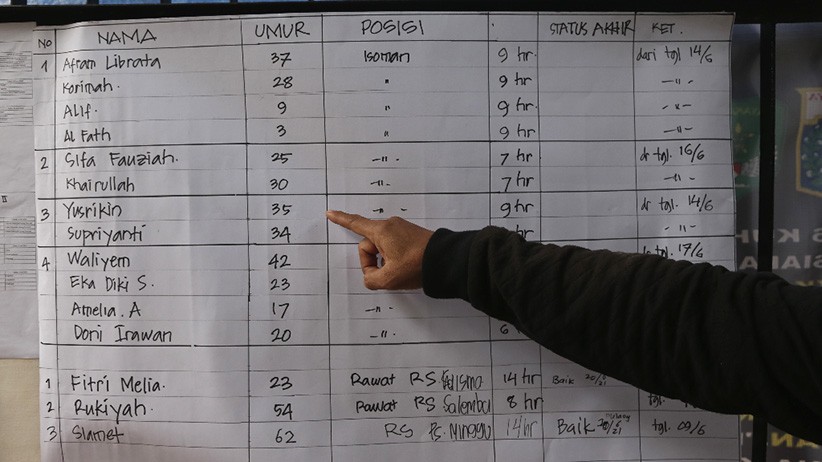 NO NAMA UMUR POSISI STATUS AKHIR KET.
1 Afram Librata 37 Isoman 9 hr dari tgl 14/6
Korimah 28 " 9 hr. —"—
ALIF. 9 " 9 hr —"—
AL Fath 3 " 9 hr —"—
2 Sifa Fauziah. 25 —"— 7 hr dr tgl. 16/6
Khairullah 30 —"— 7 hr —"—
3 Yusrikin 35 —"— 9 hr dr tgl. 14/6
Supriyanti 34 —"—
4 Waliyem 42 17/6
Eka Diki S. 23
Amelia. A 17 —"—
Doni Irawan 20 —"— 6
1 Fitri Melia. 23 Rawat RS 14 hr Baik 20/6/21
2 Rukiyah. 54 Rawat RS Salemba 8 hr
3 Slamet 62 RS Ps. Minggu 14 hr Baik tgl. 09/6